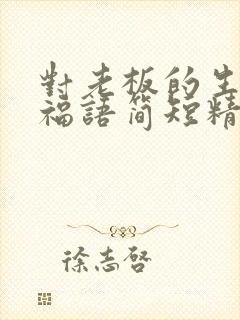 對老板的生
福語簡短精
徐志啓